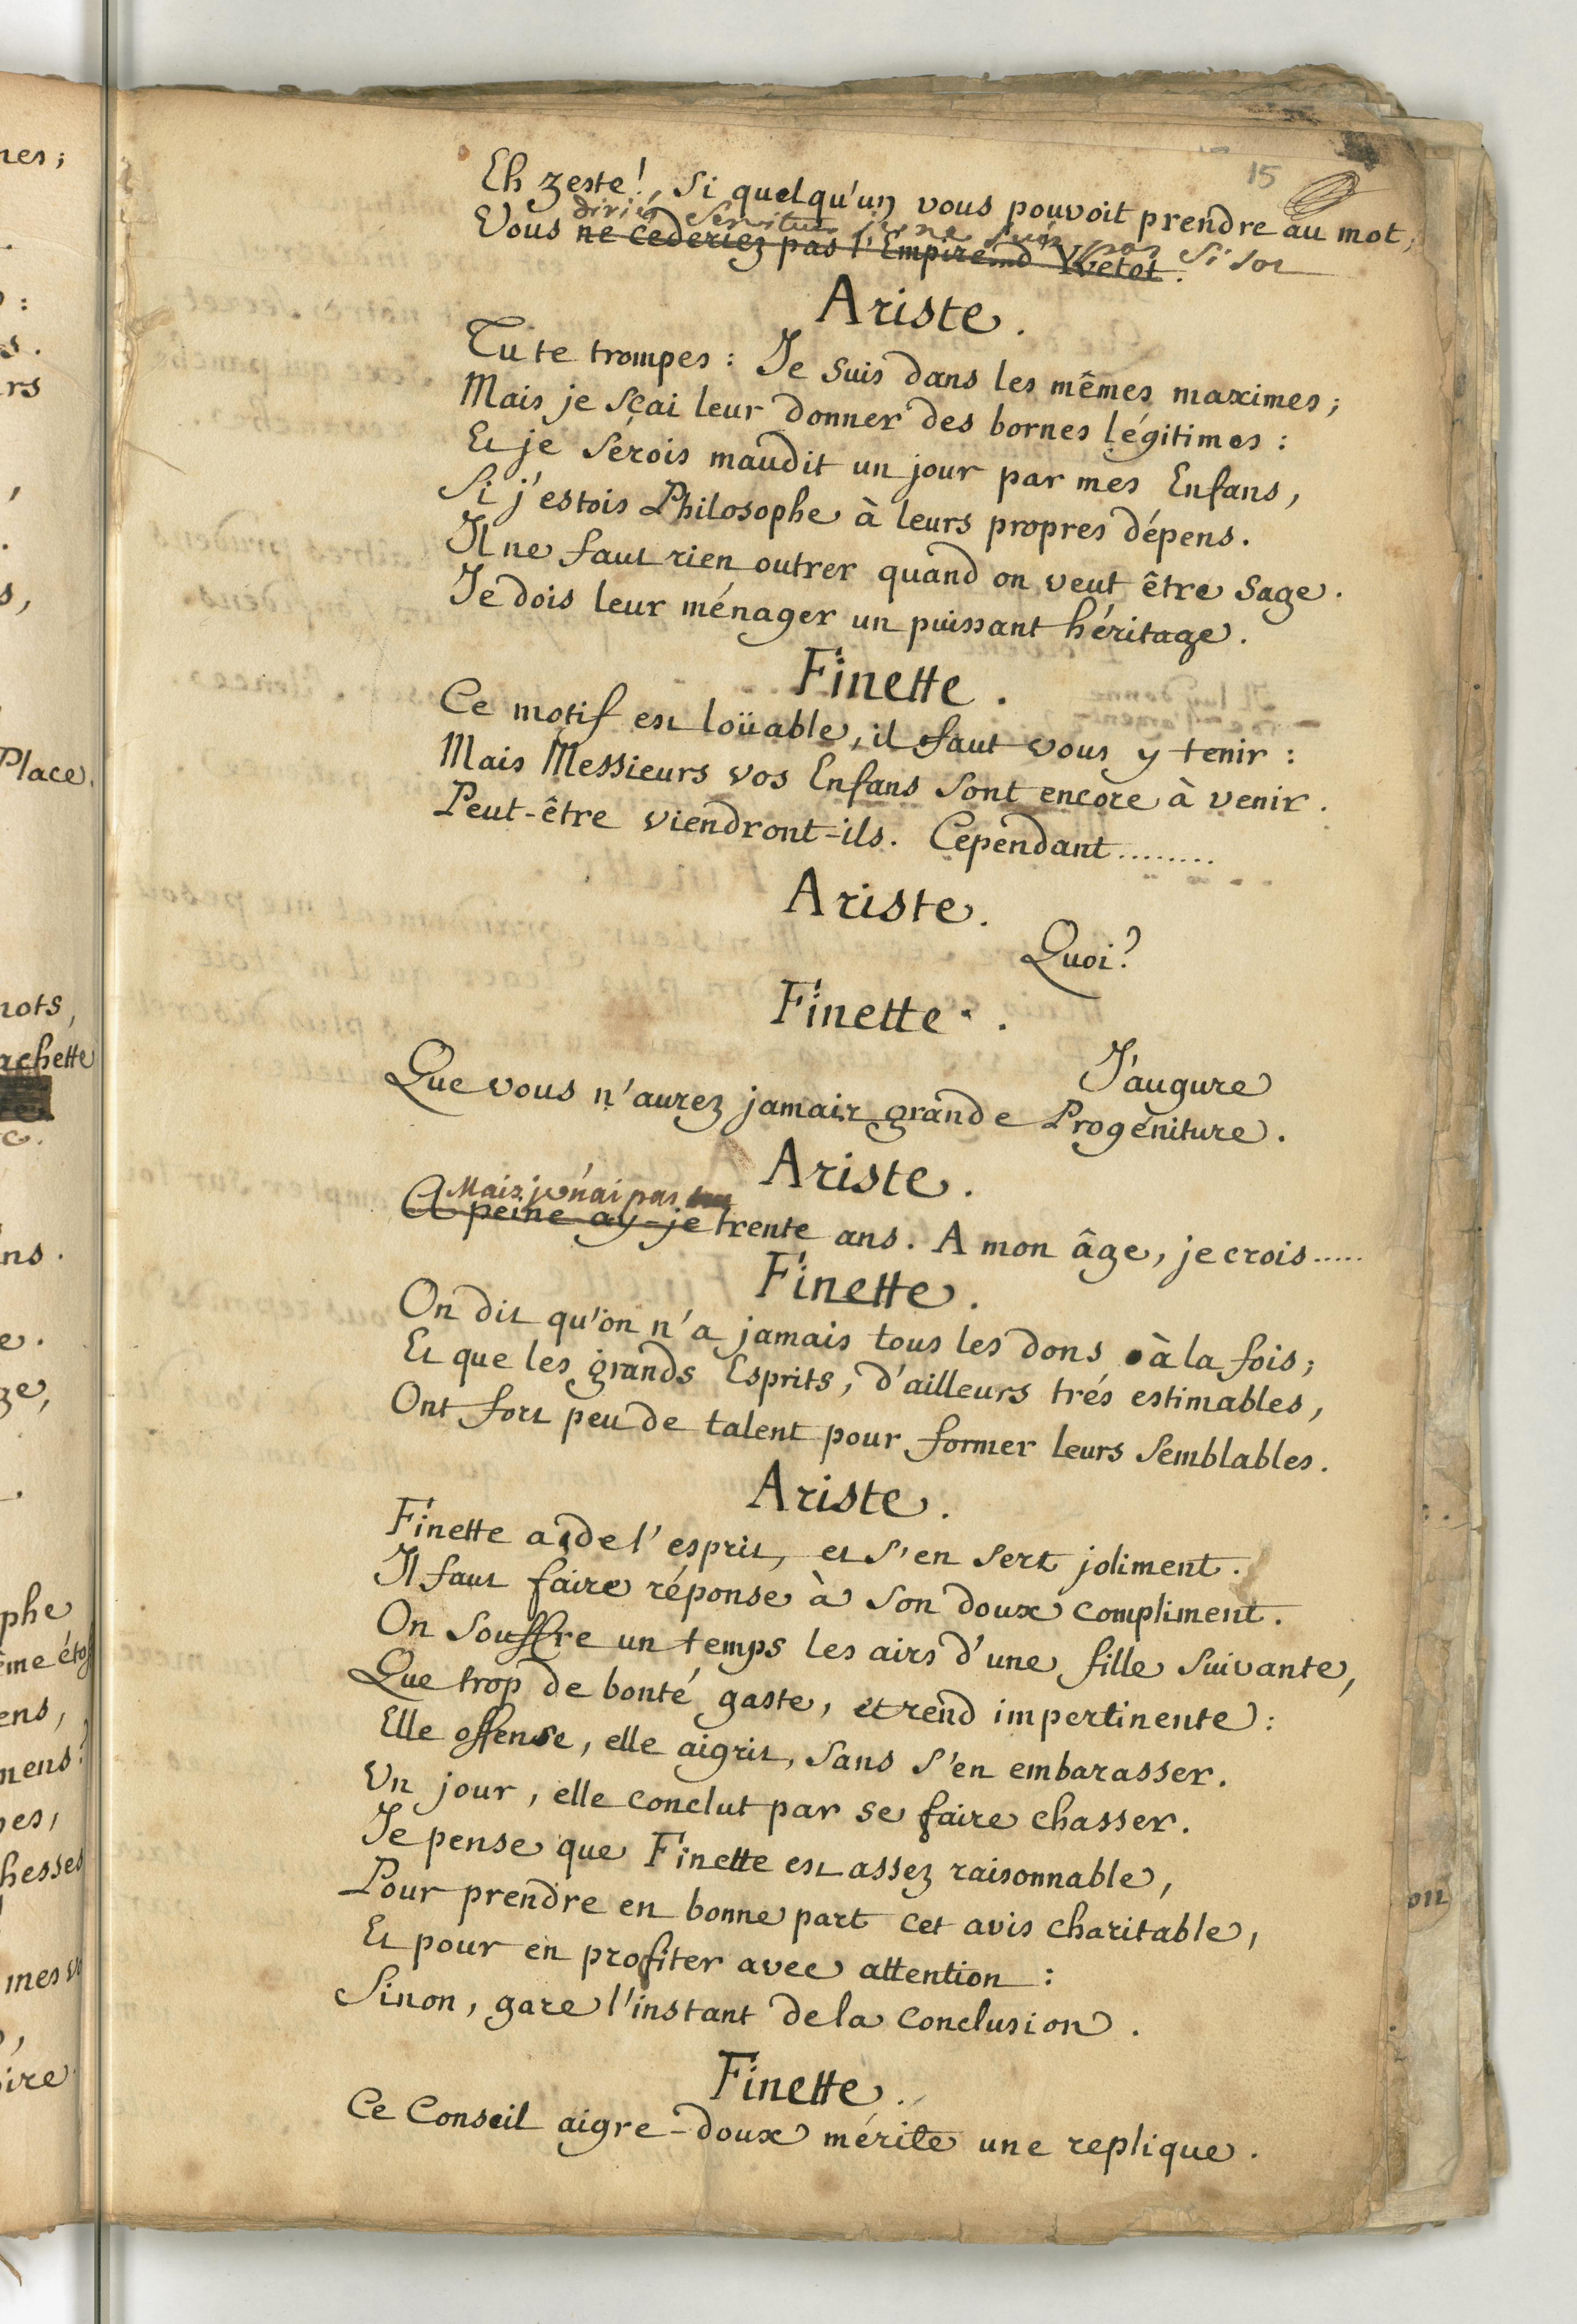 15
Eh zeste!, Si quelqu'un vous pouvoit prendre au mot;
diriés Serviteur je ne suis pas si sot
Vous ne cederiez pas l'Empire d'Yvetot.
Ariste.
Tu te trompes : Je suis dans les mêmes maximes;
Mais je sçai leur donner des bornes légitimes :
Et je sérois maudit un jour par mes Enfans,
Si j'estois Philosophe à leurs propres dépens.
Il ne faut rien outrer quand on veut être sage.
Je dois leur ménager un puissant héritage.
Finette.
Ce motif est loüable, il faut vous y tenir :
Mais Messieurs vos Enfans sont encore à venir.
Peut-être viendront-ils. Cependant.........
Ariste.
Quoi?
Finette.
J'augure
Que vous n'aurez jamais grande Progéniture.
Ariste.
Mais je n'ai pas
A peine ay-je trente ans. A mon âge, je crois.....
Finette.
On dit qu'on n'a jamais tous les dons à la fois;
Et que les grands Esprits, d'ailleurs trés estimables,
Ont fort peu de talent pour former leurs semblables.
Ariste.
Finette a de l'esprit, et s'en sert joliment.
Il faut faire réponse à son doux compliment.
On souffre un temps les airs d'une fille suivante,
Que trop de bonté gaste, et rend impertinente :
Elle offense, elle aigrit, sans s'en embarasser.
Un jour, elle conclut par se faire chasser.
Je pense que Finette est assez raisonnable,
Pour prendre en bonne part cet avis charitable,
Et pour en profiter avec attention :
Sinon, gare l'instant de la conclusion.
Finette.
Ce Conseil aigre-doux mérite une replique.